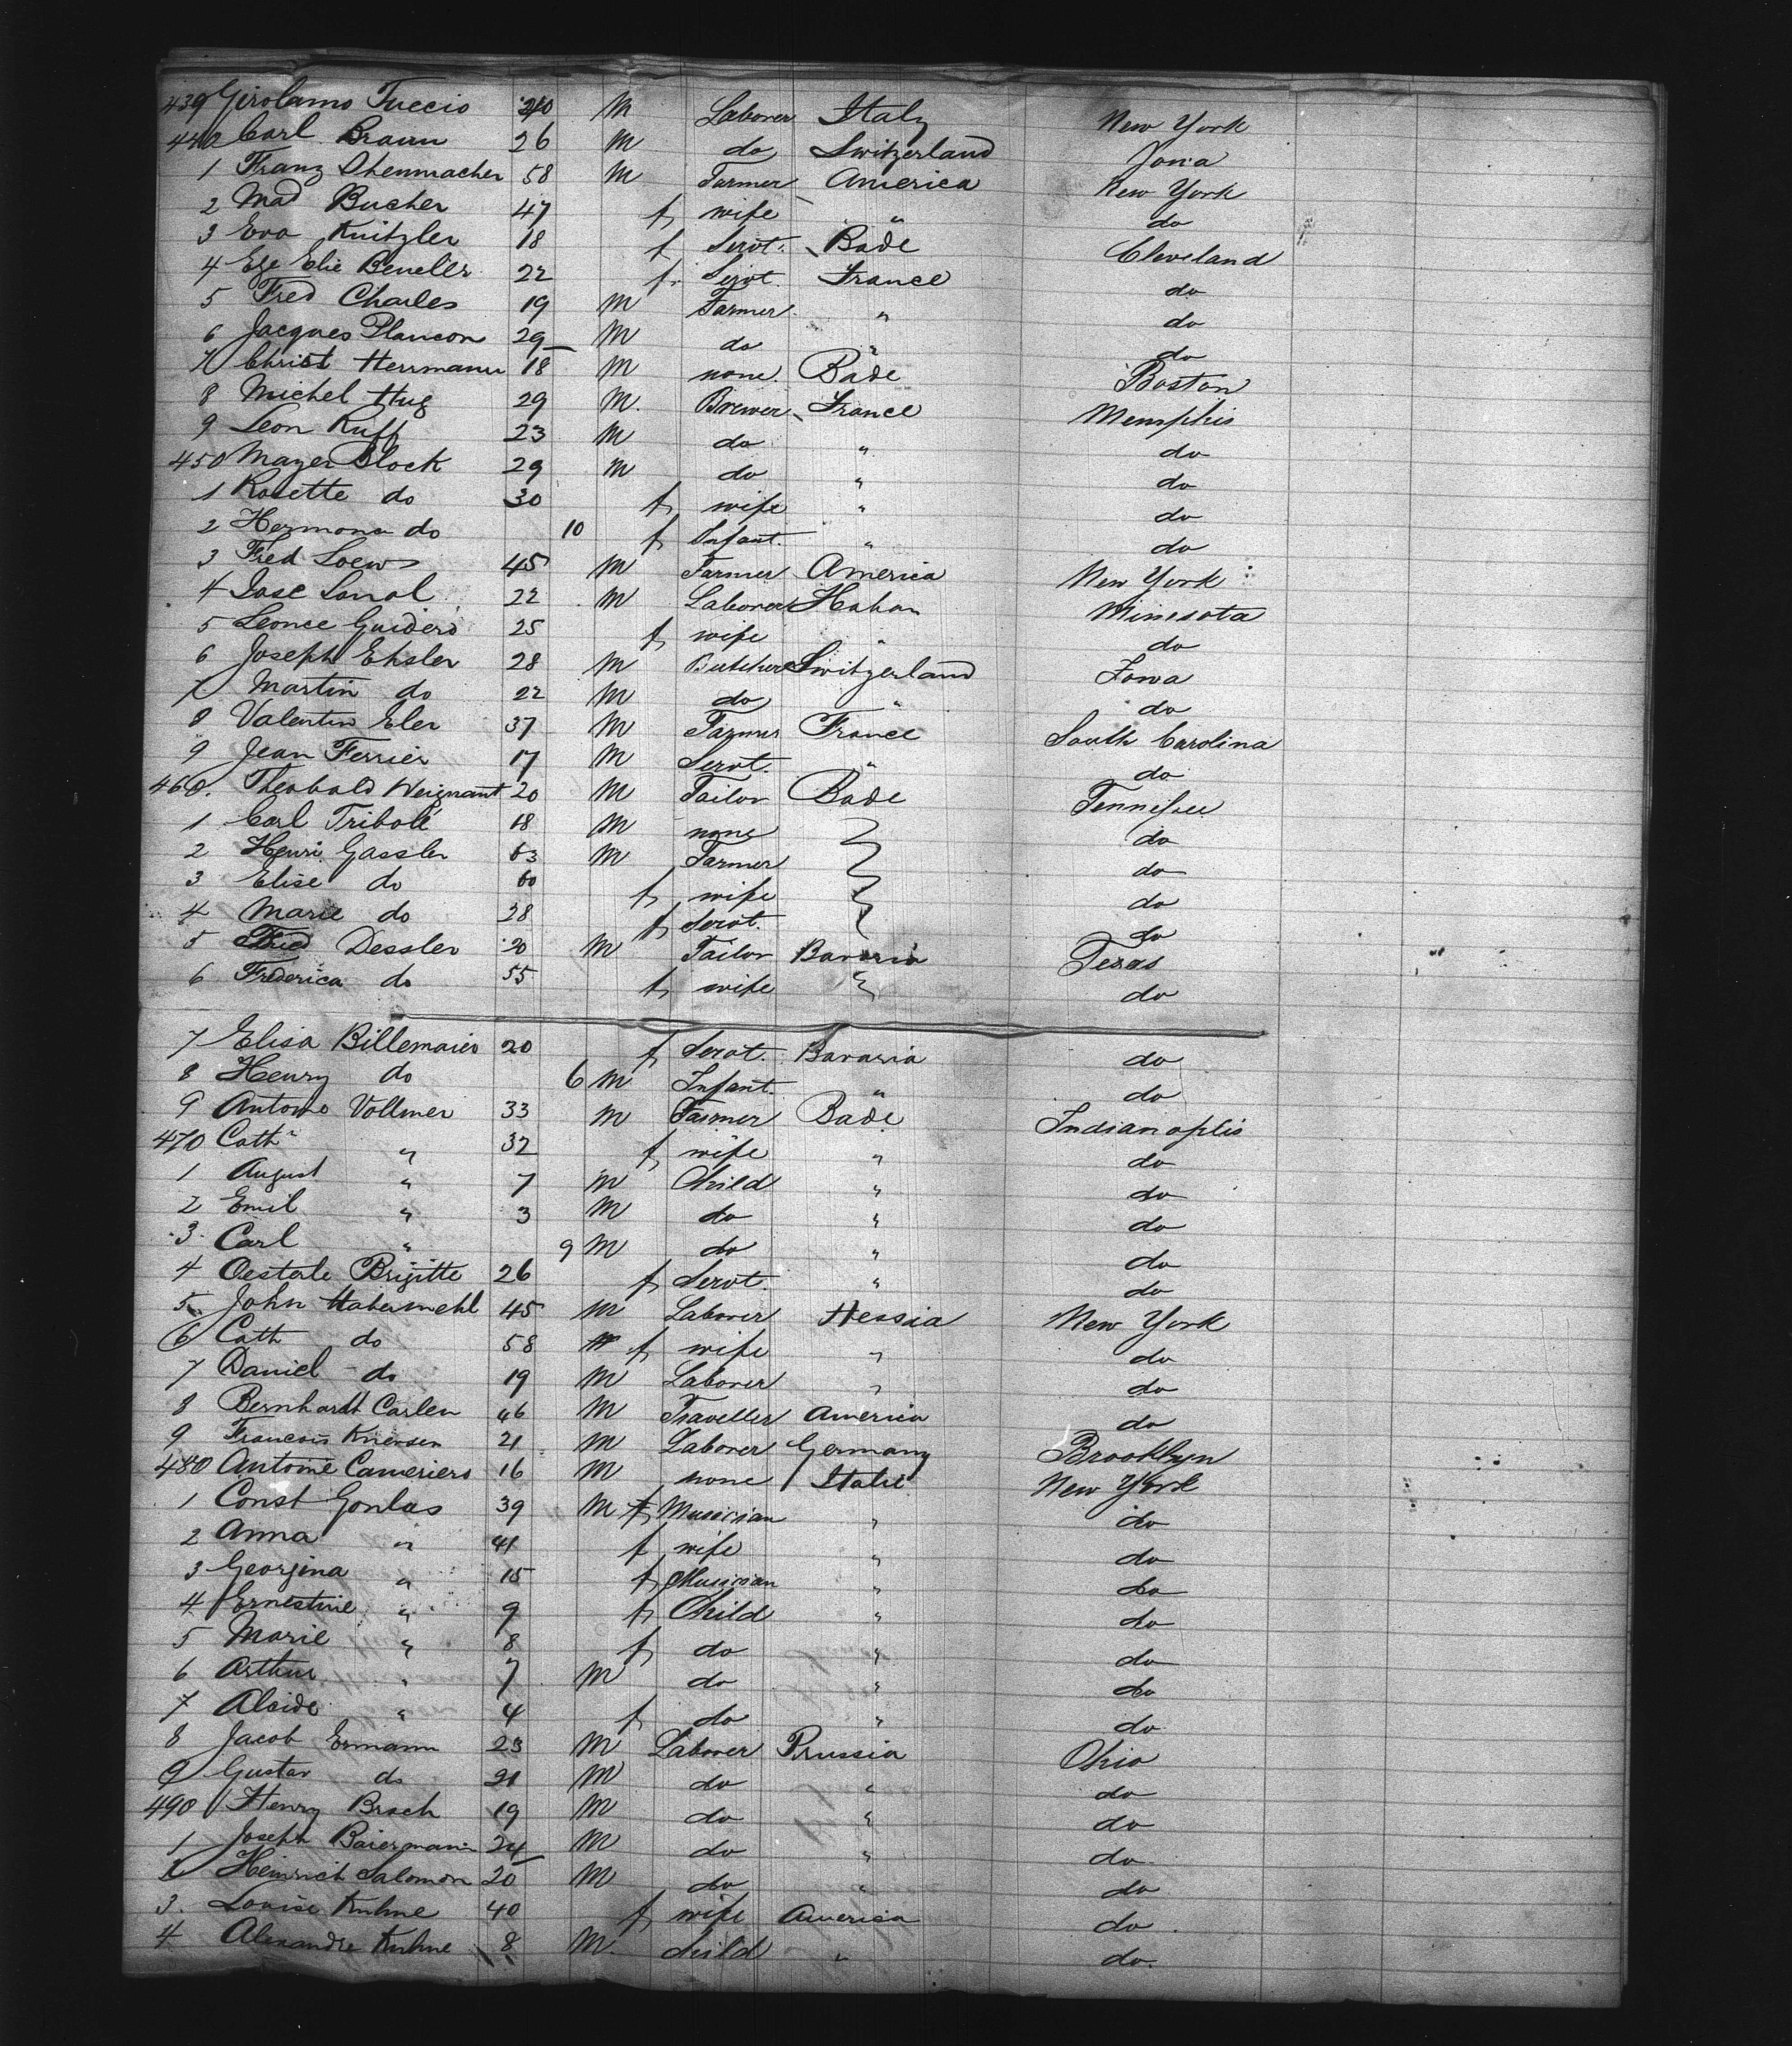 439 Girolamo Tuccio 20 M Laborer Italy New York
440 Carl Braun 26 M do Switzerland Iowa
1 Franz Shenmacher 58 M Farmer America New York
2 Mad Bucher 47 f wife " do
3 Eva Knitzler 18 f Servt. Bade Cleveland
4 Elie 22 f Servt. France do
5 Fred Charles 19 M Farmer " do
6 Jacques Plancon 29 M do " do
7 Christ Herrmann 18 M none. Bade Boston
8 Michel Hug 29 M. Brewer France Memphis
9 Leon Ruff 23 M do " do
450 Mayer Block 29 M do " do
1 Rosette do 30 f wife " do
2 Hermona do 10 f Infant. " do
3 Fred Loew 45 M Farmer America New York
4 Jose 22 M Laborer Minesota
5 Leonce Guidero 25 f wife " do
6 Joseph Ehsler 28 M Butcher Switzerland Iowa
7 Martin do 22 M do " do
8 Valentin Eler 37 M Farmer France South Carolina
9 Jean Ferrier 17 M Servt. " do
460. Theobald Weignant 20 M Tailor Bade Tennessee
1 Carl Tribolé 18 M none do
2 Henri Gassler 63 M Farmer do
3 Elise do 60 f wife do
4 Marie do 28 f Servt. do
5 Fried Dessler 20 M Tailor Bavaria Texas
6 Frederica do 55 f wife do
7 Elisa Billemaier 20 f Servt. Bavaria do
8 Henry do 6 M Infant. " do
9 Antoine Vollmer 33 M Farmer Bade Indianoplis
470 Cath " 32 f wife " do
1 August " 7 M Child " do
2 Emil " 3 M do " do
3. Carl " 9 M do " do
4 Oesterle Brigitte 26 f Servt. " do
5 John Habermehl 45 M Laborer Hessia New York
6 Cath do 58 f wife " do
7 Daniel do 19 M Laborer " do
8 Bernhardt Carlen 46 M Traveller America do
9 Francois Kniersen 21 M Laborer Germany Brooklyn
480 Antoine Cameriero 16 M none Italie New York
1 Const Gonlas 39 M Musician " do
2 Anna " 41 f wife " do
3 Georgina " 15 f Musician " do
4 Ernestine " 9 f Child " do
5 Marie " 8 f do " do
6 Arthur " 7 M do " do
7 Alcide " 4 f do " do
8 Jacob Ermann 23 M Laborer Prussia Ohio
9 Gustav do 21 M do " do
490 Henry Brach 19 M do " do
1 Joseph Baiermann 24 M do " do
2 Heinrich Salomon 20 M do " do
3. Louise Kuhne 40 f wife America do
4 Alexandre Kuhne 8 M. child " do.